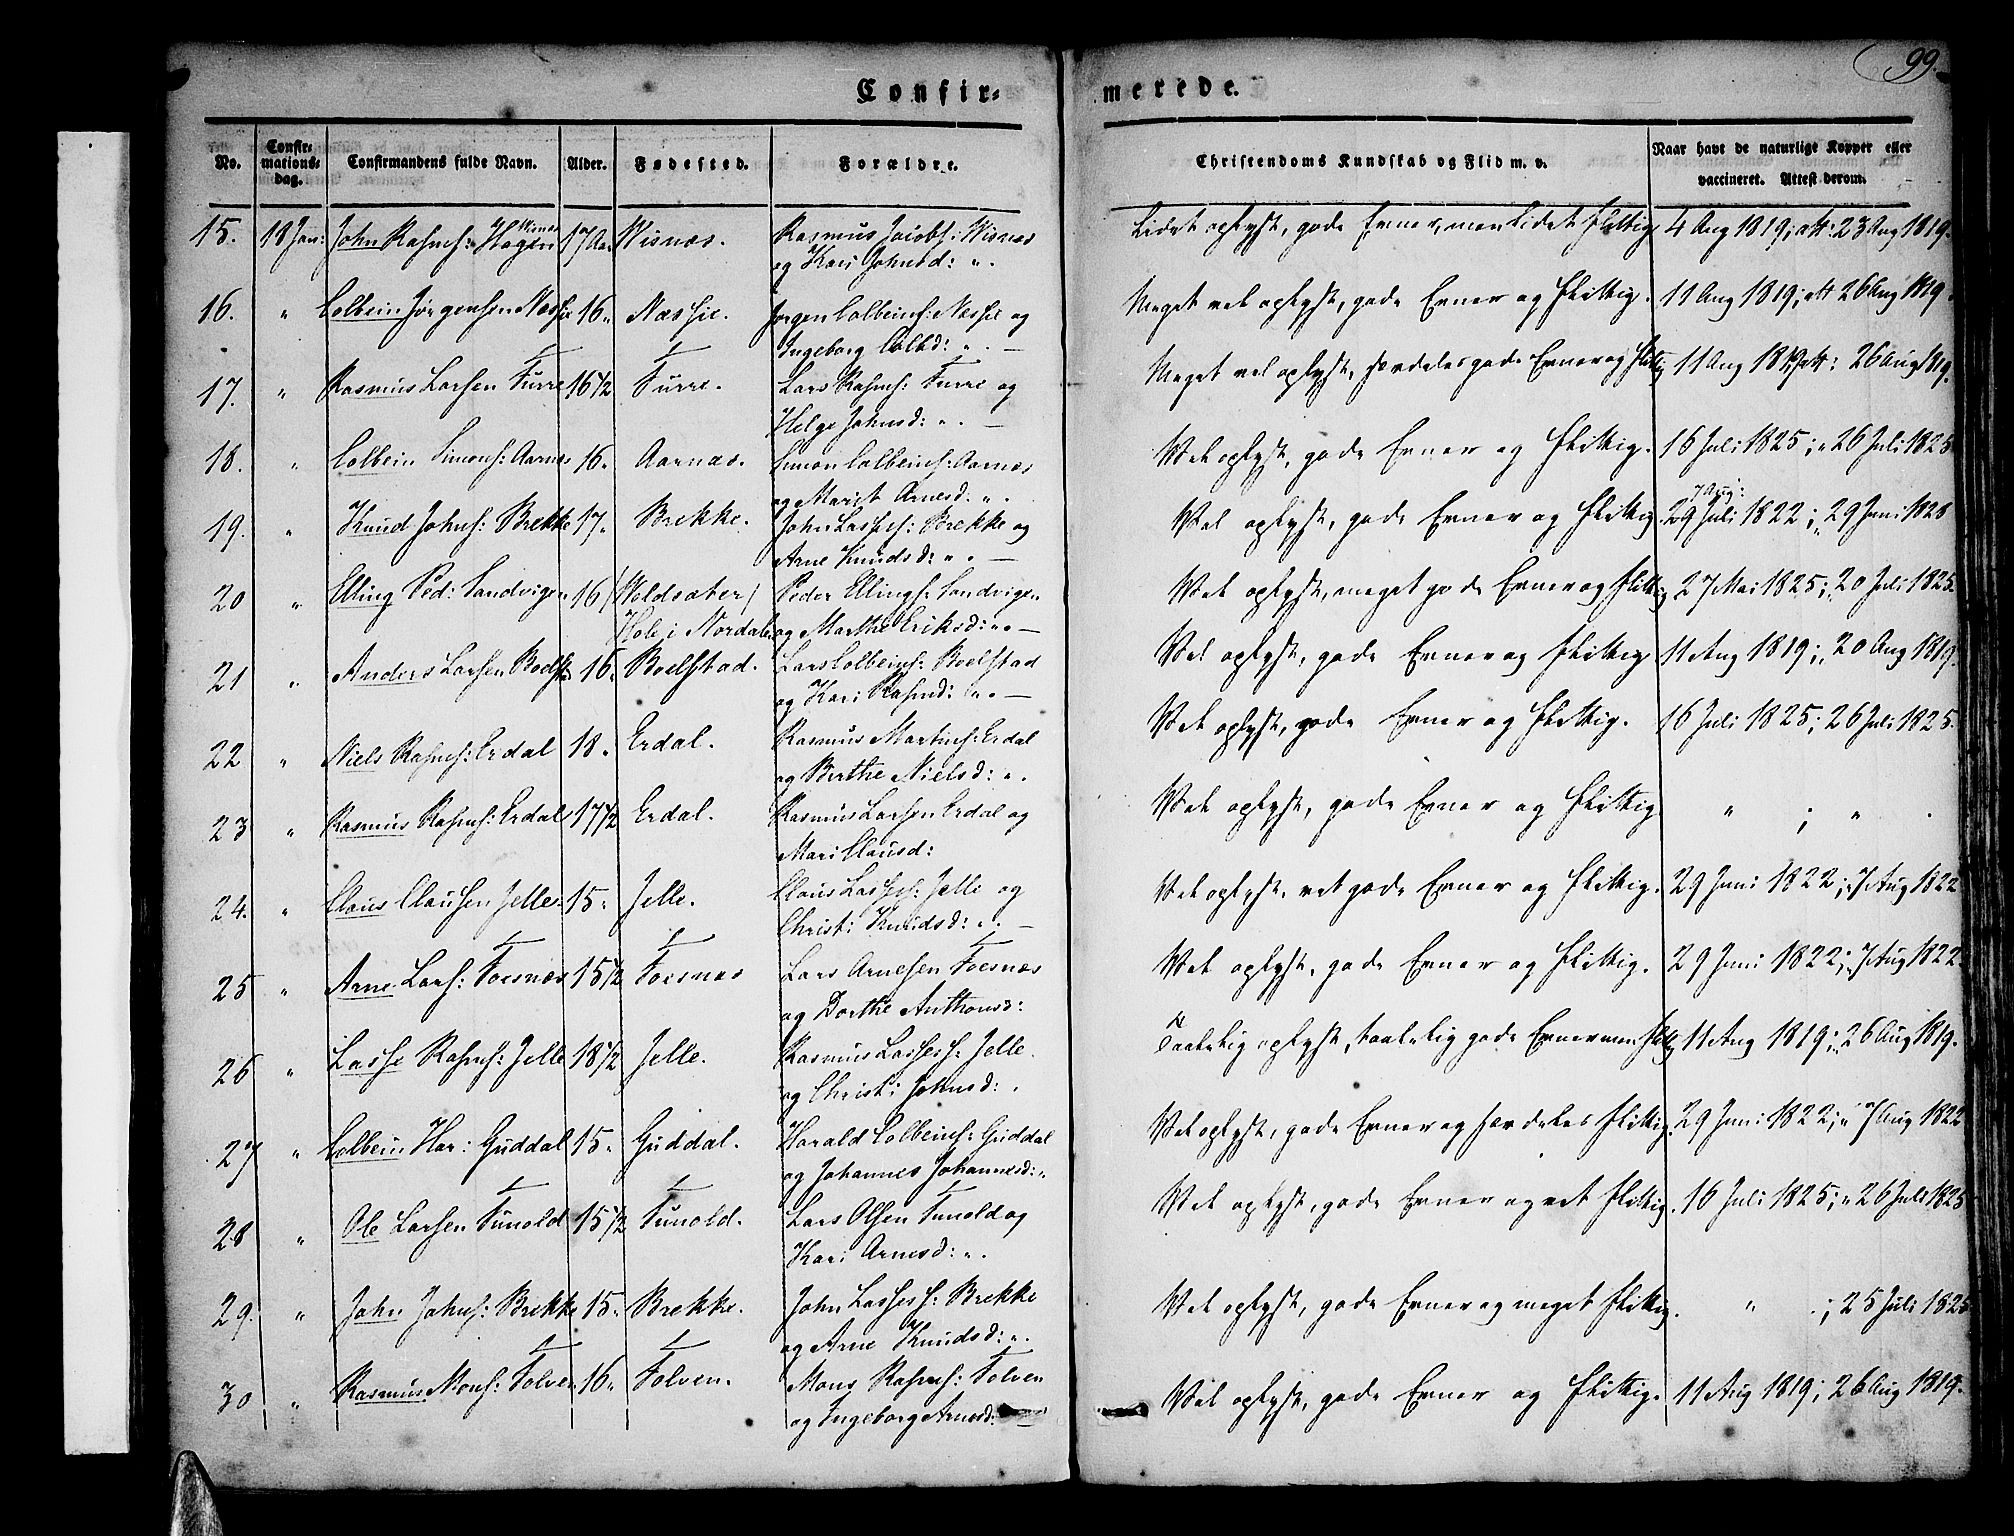 99.
Confirmerede.
No. Confirmationsdag. Confirmandens fulde Navn. Alder. Fødested. Forældre. Christendoms Kundskab og Flid m. v. Naar havt de naturlige Kopper eller vaccineret. Attest derom.
15. 18 Jan: John Rasms: Hagen Wisnæs 17 Aar Wisnæs. Rasmus Jacobs: Wisnæs Lidet oplyst, gode Evner, men lidet flittig 4 Aug 1819; att: 23 Aug 1819.
og Kari Johnsd: „.
16. „ Colbein Jørgensen Næssie 16„ Næssie. Jørgen Colbeins: Næssie og Meget vel oplyst, gode Evner og flittig. 11 Aug 1819; att 26 Aug 1819.
Ingeborg Colbd: „. —
17. „ Rasmus Larsen Furre 16 1/2 Furre. Lars Rasms: Furre og Meget vel oplyst, særdeles gode Evner og flittig 11 Aug 1819; att: 26 Aug 1819.
Helge Johnsd: „. —
18. „ Colbein Simons: Aarnes 16„ Aarnæs. Simon Colbeins: Aarnæs Vel oplyst, gode Evner og flittig. 16 Juli 1825; „ 26 Juli 1825
og Marit Arnesd: „.
19. „ Knud Johns: Brekke 17„ Brekke. John Lasses: Brekke og Vel oplyst, gode Evner og flittig. 29 Juli 1822; „ 29 Juni 1828
7 Aug:
Arne Knudsd: „. —
20 „ Elling Ped: Sandvigen 16 (Woldsæter) Peder Ellings: Sandvigen Vel oplyst, meget gode Evner og flittig 27 Mai 1825; „ 20 Juli 1825.
Hole i Nordalen og Marthe Eriksd: „. —
21 „ Anders Larsen Boelst 16„ Boelstad. Lars Colbeins: Boelstad Vel oplyst, gode Evner og flittig 11 Aug 1819; „ 20 Aug 1819.
og Kari Rasmd: „. —
22 „ Niels Rasms: Erdal 18„ Erdal. Rasmus Martins: Erdal Vel oplyst, gode Evner og flittig. 16 Juli 1825; 26 Juli 1825.
og Berthe Nielsd: „.
23 „ Rasmus Rasms: Erdal 17 1/2 Erdal. Rasmus Larsen Erdal og Vel oplyst, gode Evner og flittig „ ; „ .
Mari Clausd:
24. „ Claus Clausen Jelle 15„ Jelle. Claus Lasses: Jelle og Vel oplyst, ret gode Evner og flittig. 29 Juni 1822; „ 7 Aug 1822
Christi Knudsd: „. —
25 „ Arne Lars: Foesnæs 15 1/2 Foesnæs Lars Arnesen Foesnæs Vel oplyst, gode Evner og flittig. 29 Juni 1822; „ 7 Aug 1822.
og Dorthe Anthonsd:
26 „ Lasse Rasms: Jelle 18 1/2 Jelle. Rasmus Lasses: Jelle. Taalelig oplyst, taalelig gode Evner men flittig 11 Aug 1819; „ 26 Aug 1819.
og Christi Johnsd: .
27 „ Colbein Har: Guddal 15„ Guddal. Harald Colbeins: Guddal Vel oplyst, gode Evner og særdeles flittig. 29 Juni 1822; „ 7 Aug 1822
og Johannes Johannesd: „
28 „ Ole Larsen Tunold 15 1/2 Tunold. Lars Olsen Tunold og Vel oplyst, gode Evner og ret flittig. 16 Juli 1825; „ 26 Juli 1825
Kari Arnesd: „.
29. „ John Johns: Brekke 15„ Brekke. John Lasses: Brekke Vel oplyst, gode Evner og meget flittig. „ . ; 25 Juli 1825
og Arne Knudsd: „.
30 „ Rasmus Mons: Tolven 16„ Tolven. Mons Rasms: Tolven Vel oplyst, gode Evner og flittig. 11 Aug 1819; 26 Aug 1819.
og Ingeborg Arnesd: —